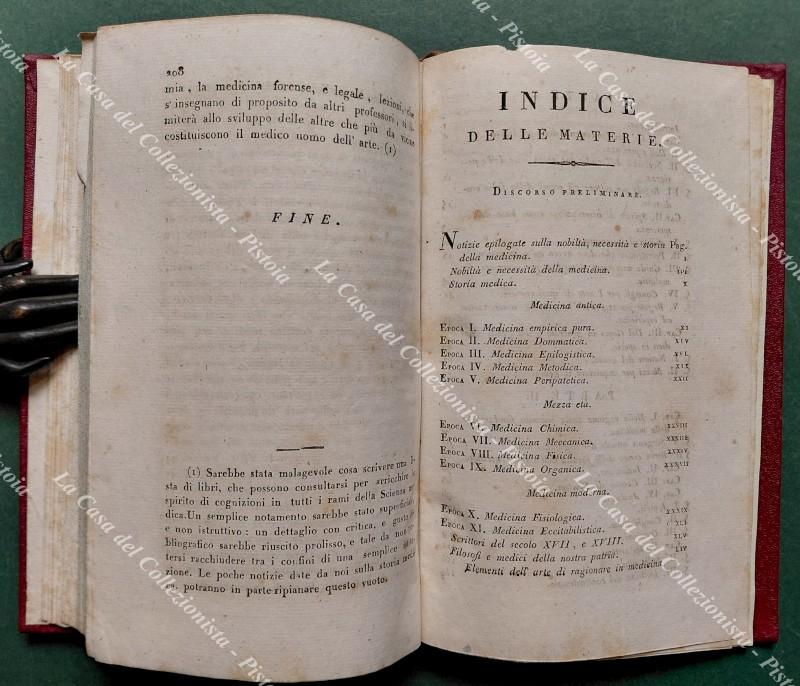 208
mia, la medicina forense, e legale, lezioni, che
s'insegnano di proposito da altri professori, si li-
miterà allo sviluppo delle altre che più da vicino
costituiscono il medico uomo dell'arte. (1)
FINE.
(1) Sarebbe stata malagevole cosa scrivere una
sta di libri, che possono consultarsi per arricchire
spirito di cognizioni in tutti i rami della Scienza
dica. Un semplice notamento sarebbe stato
e non istruttivo: un dettaglio con critica, e gusto
bliografico sarebbe riuscito prolisso, e tale da non
tersi racchiudere tra i confini di una semplice
zione. Le poche notizie date da noi sulla storia
ca, potranno in parte ripianare questo vuoto.
INDICE
DELLE MATERIE.
DISCORSO PRELIMINARE.
Notizie epilogate sulla nobiltà, necessità e storia Pag.
della medicina. I
Nobiltà e necessità della medicina. IVI
Storia medica. X
Medicina antica.
EPOCA I. Medicina empirica pura. XI
EPOCA II. Medicina Dommatica. XIV
EPOCA III. Medicina Epilogistica. XVI
EPOCA IV. Medicina Metodica. XIX
EPOCA V. Medicina Peripatetica. XXII
Mezza età.
EPOCA VI. Medicina Chimica. XXVIII
EPOCA VII. Medicina Meccanica. XXXIII
EPOCA VIII. Medicina Fisica. XXXIV
EPOCA IX. Medicina Organica. XXXVII
Medicina moderna.
EPOCA X. Medicina Fisiologica. XXXIX
EPOCA XI. Medicina Eccitabilistica. XLI
Scrittori del secolo XVII, e XVIII. XLV
Filosofi e medici della nostra patria. LIV
Elementi dell'arte di ragionare in medicina
La Casa del Collezionista - Pistoia